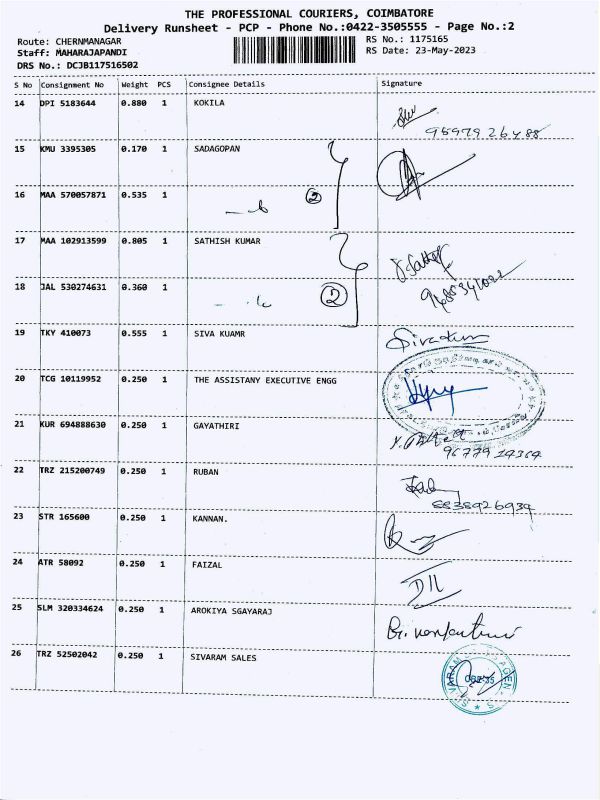 THE PROFESSIONAL COURIERS, COIMBATORE
Delivery Runsheet - PCP - Phone No.:0422-3505555 - Page No.:2
Route: CHERNMANAGAR RS No.: 1175165
Staff: MAHARAJAPANDI RS Date: 23-May-2023
DRS No.: DCJB117516502
S No Consignment No Weight PCS Consignee Details Signature
14 DPI 5183644 0.880 1 KOKILA
15 KMU 3395305 0.170 1 SADAGOPAN
16 MAA 570057871 0.535 1 2
17 MAA 102913599 0.805 1 SATHISH KUMAR
18 JAL 530274631 0.360 1 2
19 TKY 410073 0.555 1 SIVA KUAMR
20 TCG 10119952 0.250 1 THE ASSISTANY EXECUTIVE ENGG
21 KUR 694888630 0.250 1 GAYATHIRI
22 TRZ 215200749 0.250 1 RUBAN
8838926939
23 STR 165600 0.250 1 KANNAN.
24 ATR 58092 0.250 1 FAIZAL
25 SLM 320334624 0.250 1 AROKIYA SGAYARAJ
26 TRZ 52502042 0.250 1 SIVARAM SALES